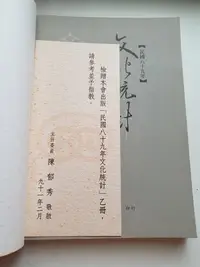 檢贈本會出版「民國八十九年文化統計」乙冊，
請參考並予指教。
主任委員
陳郁秀 敬啟
九十一年二月
【民國八十九年】
文化統計